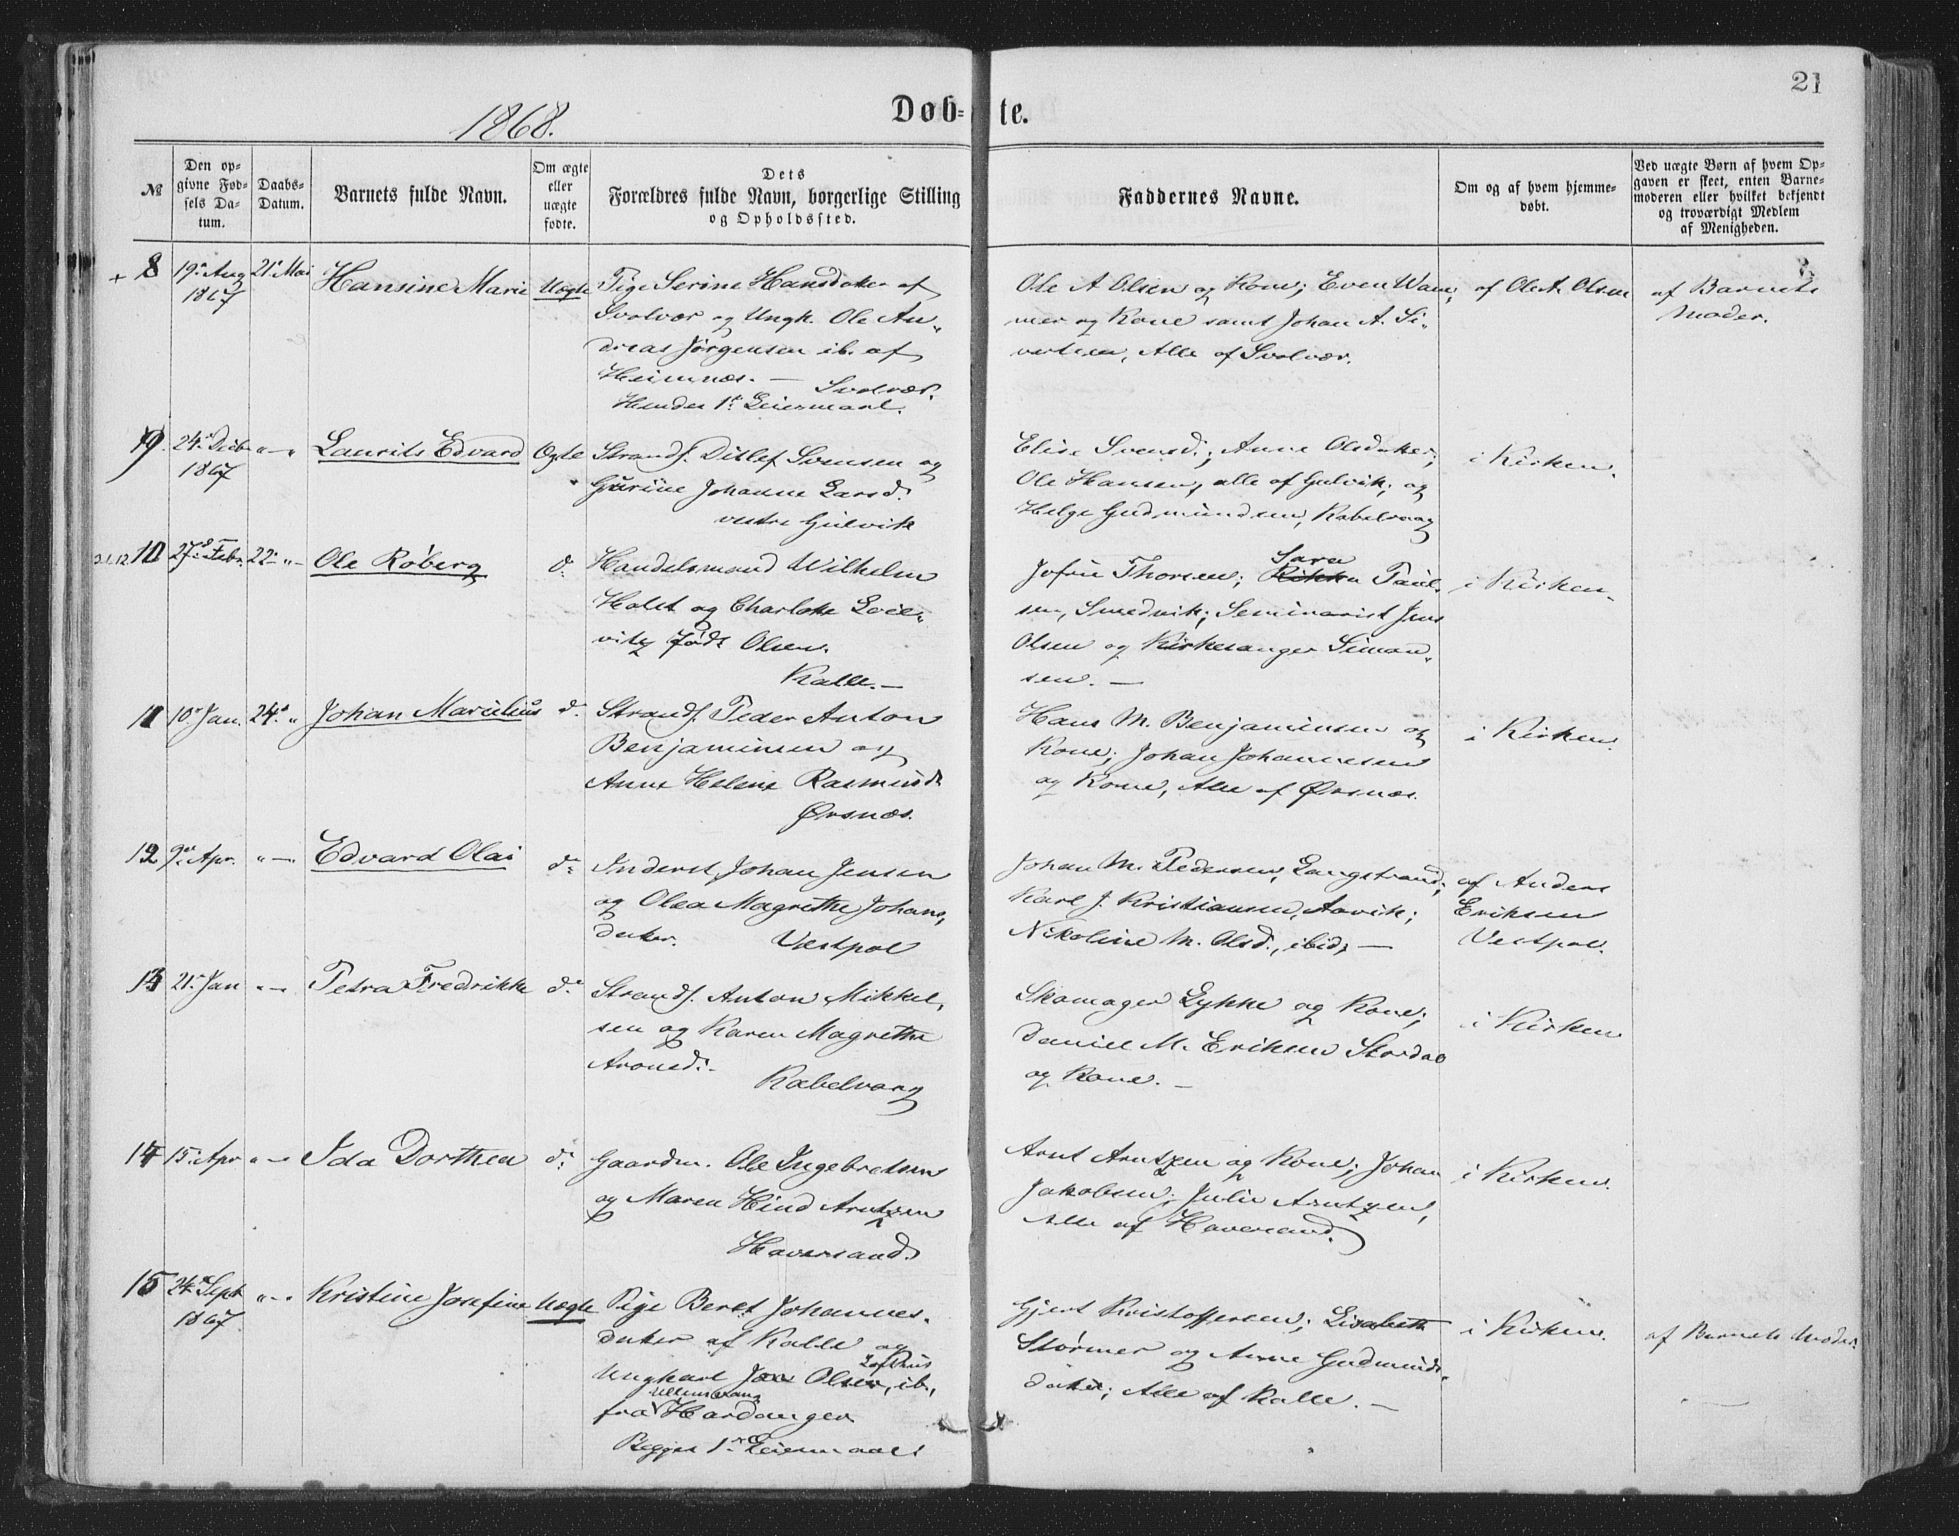 21
1868.
Døb- te.
№
Den opgivne Fødsels Datum.
Daabs-Datum.
Barnets fulde Navn.
Om ægte eller uægte fødte.
Dets Forældres fulde Navn, borgerlige Stilling og Opholdssted.
Faddernes Navne.
Om og af hvem hjemmedøbt.
Ved uægte Børn af hvem Opgaven er skeet, enten Barnemoderen eller hvilket bekjendt og troværdigt Medlem af Menigheden.
+ 8 19. Aug 1867 21. Mai Hansine Marie Uægte
Pige Serine Hansdater af
Svolvær og Ungk. Ole An-
dreas Jørgensen ib. af
Heimnæs. — Svolvær.
Hendes 1ste Leiermaal.
Ole A Olsen og Kone; Even Wam-
mer og Kone samt Johan A. Si-
vertsen, Alle af Svolvær.
af Ole A. Olsen
af Barnets
Moder.
9. 24. Decbr 1867 " — " Laurits Edvard Ægte
Strands. Ditlef Svensen og
Gurine Johanne Larsd.
vestre Gulvik
Elise Svensd.; Anne Olsdater;
Ole Hansen, alle af Gulvik; og
Helge Gudmundsen, Kabelvaag
i Kirken.
10 27. Febr. 22 " — Ole Røberg do
Handelsmand Wilhelm
Holst og Charlotte Lovi-
vitz født Olsen.
Kalle. —
Jofrie Thorsen; Sara Paul-
sen, Smedvik; Seminarist Jens
Olsen og Kirkesanger Simon-
sen. —
i Kirken.
11 10. Jan. 24. " Johan Marselius do
Strands. Peder Anton
Benjaminsen og
Anne Helene Rasmusd.
Ørsnæs.
Hans M. Benjaminsen og
Kone; Johan Johannesen
og Kone, Alle af Ørsnæs.
i Kirken.
12 9. Apr. " — Edvard Olai do
Inderst Johan Jensen
og Olea Magrethe Johans-
dater. Vestpol
Johan M. Pedersen, Langstrand;
Karl J. Kristiansen, Aavik;
Nikoline M. Olsd., ibid. —
af Anders
Eriksen
Vestpol.
13 21. Jan " — Petra Fredrikke do
Strands. Anton Mikkel-
sen og Karen Magrethe
Aronsd. —
Kabelvaag
Skomager Lykke og Kone;
Daniel M. Eriksen Stordal
og Kone. —
i Kirken
14 15. Apr " — Ida Dorthea do
Gaardm. Ole Ingebretsen
og Maren Hind Arntzen
Haversand.
Arnt Arntzen og Kone; Johan
Jakobsen; Julie Arntzen,
Alle af Haversand.
i Kirken.
15 24. Sept 1867 " — " Kristine Josefine Uægte
Pige Beret Johannes-
dater af Kalle og
Ungkarl Jon Olsen Lofthuus, ib.,
fra Ullensvang Hardanger
Begges 1ste Leiermaal
Gjert Kristoffersen; Lisabeth
Størmer og Anne Gudmunds-
dater; Alle af Kalle. —
i Kirken.
af Barnets Moder.